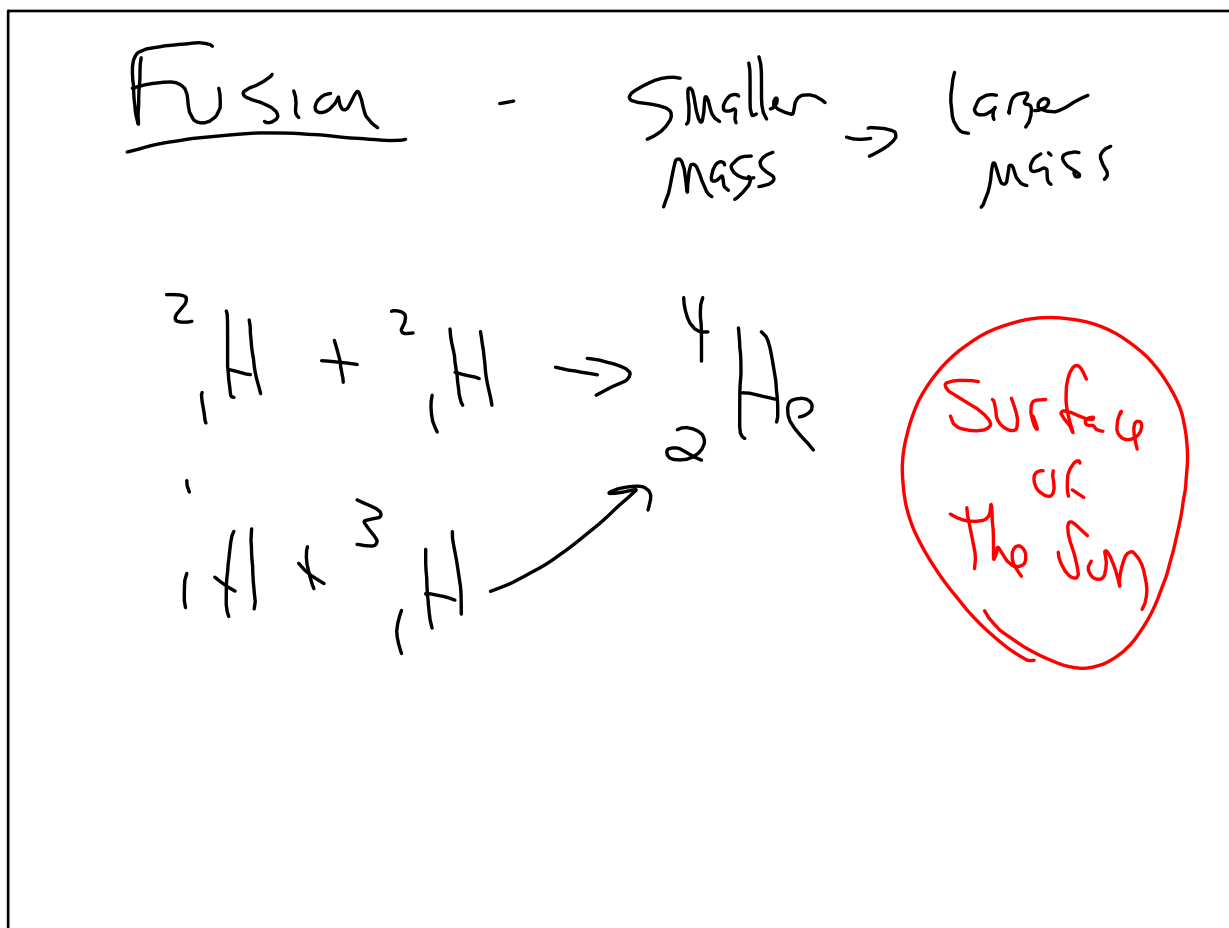 Fusion - smaller mass → larger mass
²₁H + ²₁H → ⁴₂He
¹₁H + ³₁H
Surface
of
the Sun